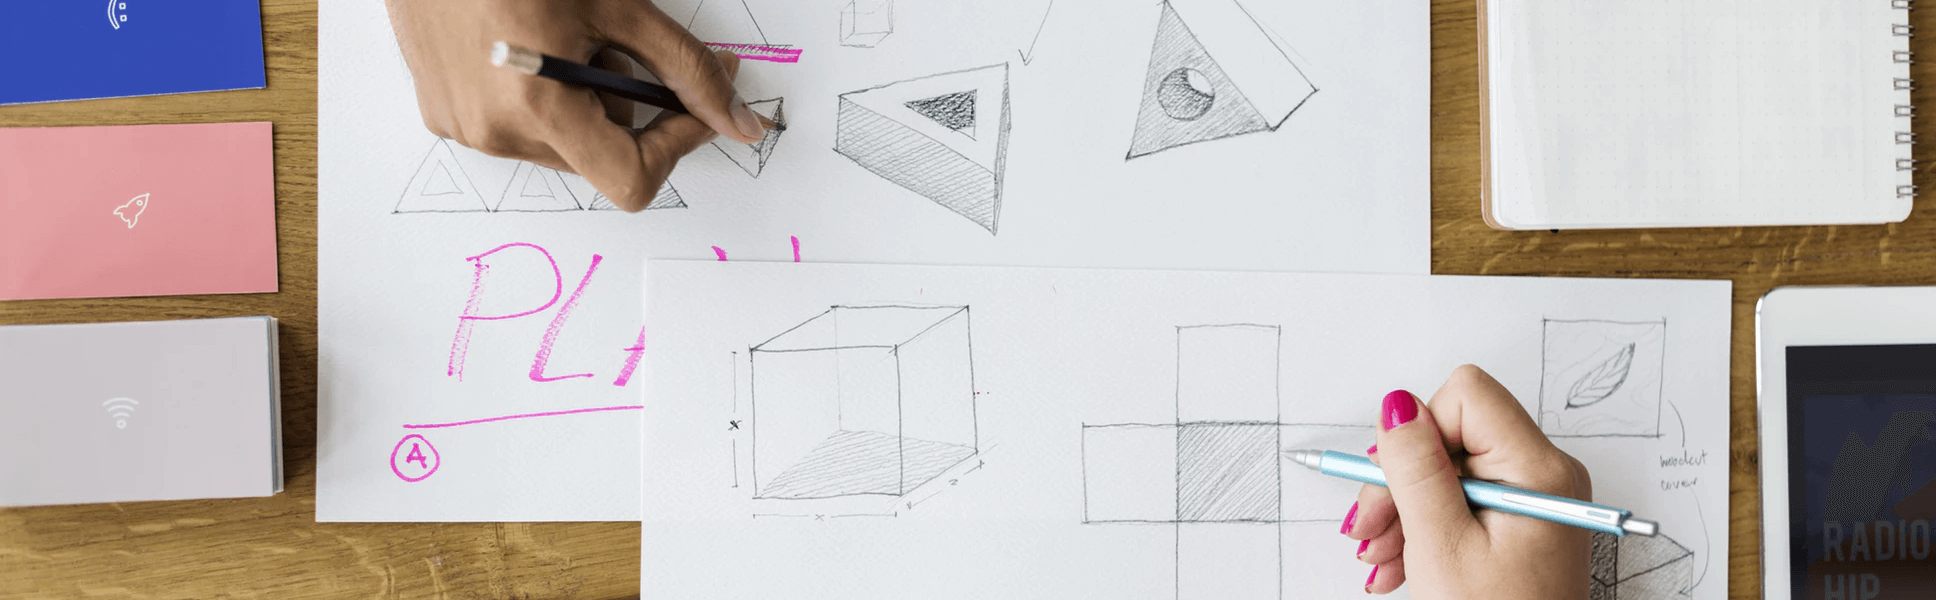 PLA
A
x
x
z
woodcut
cover
RADIO
HIP